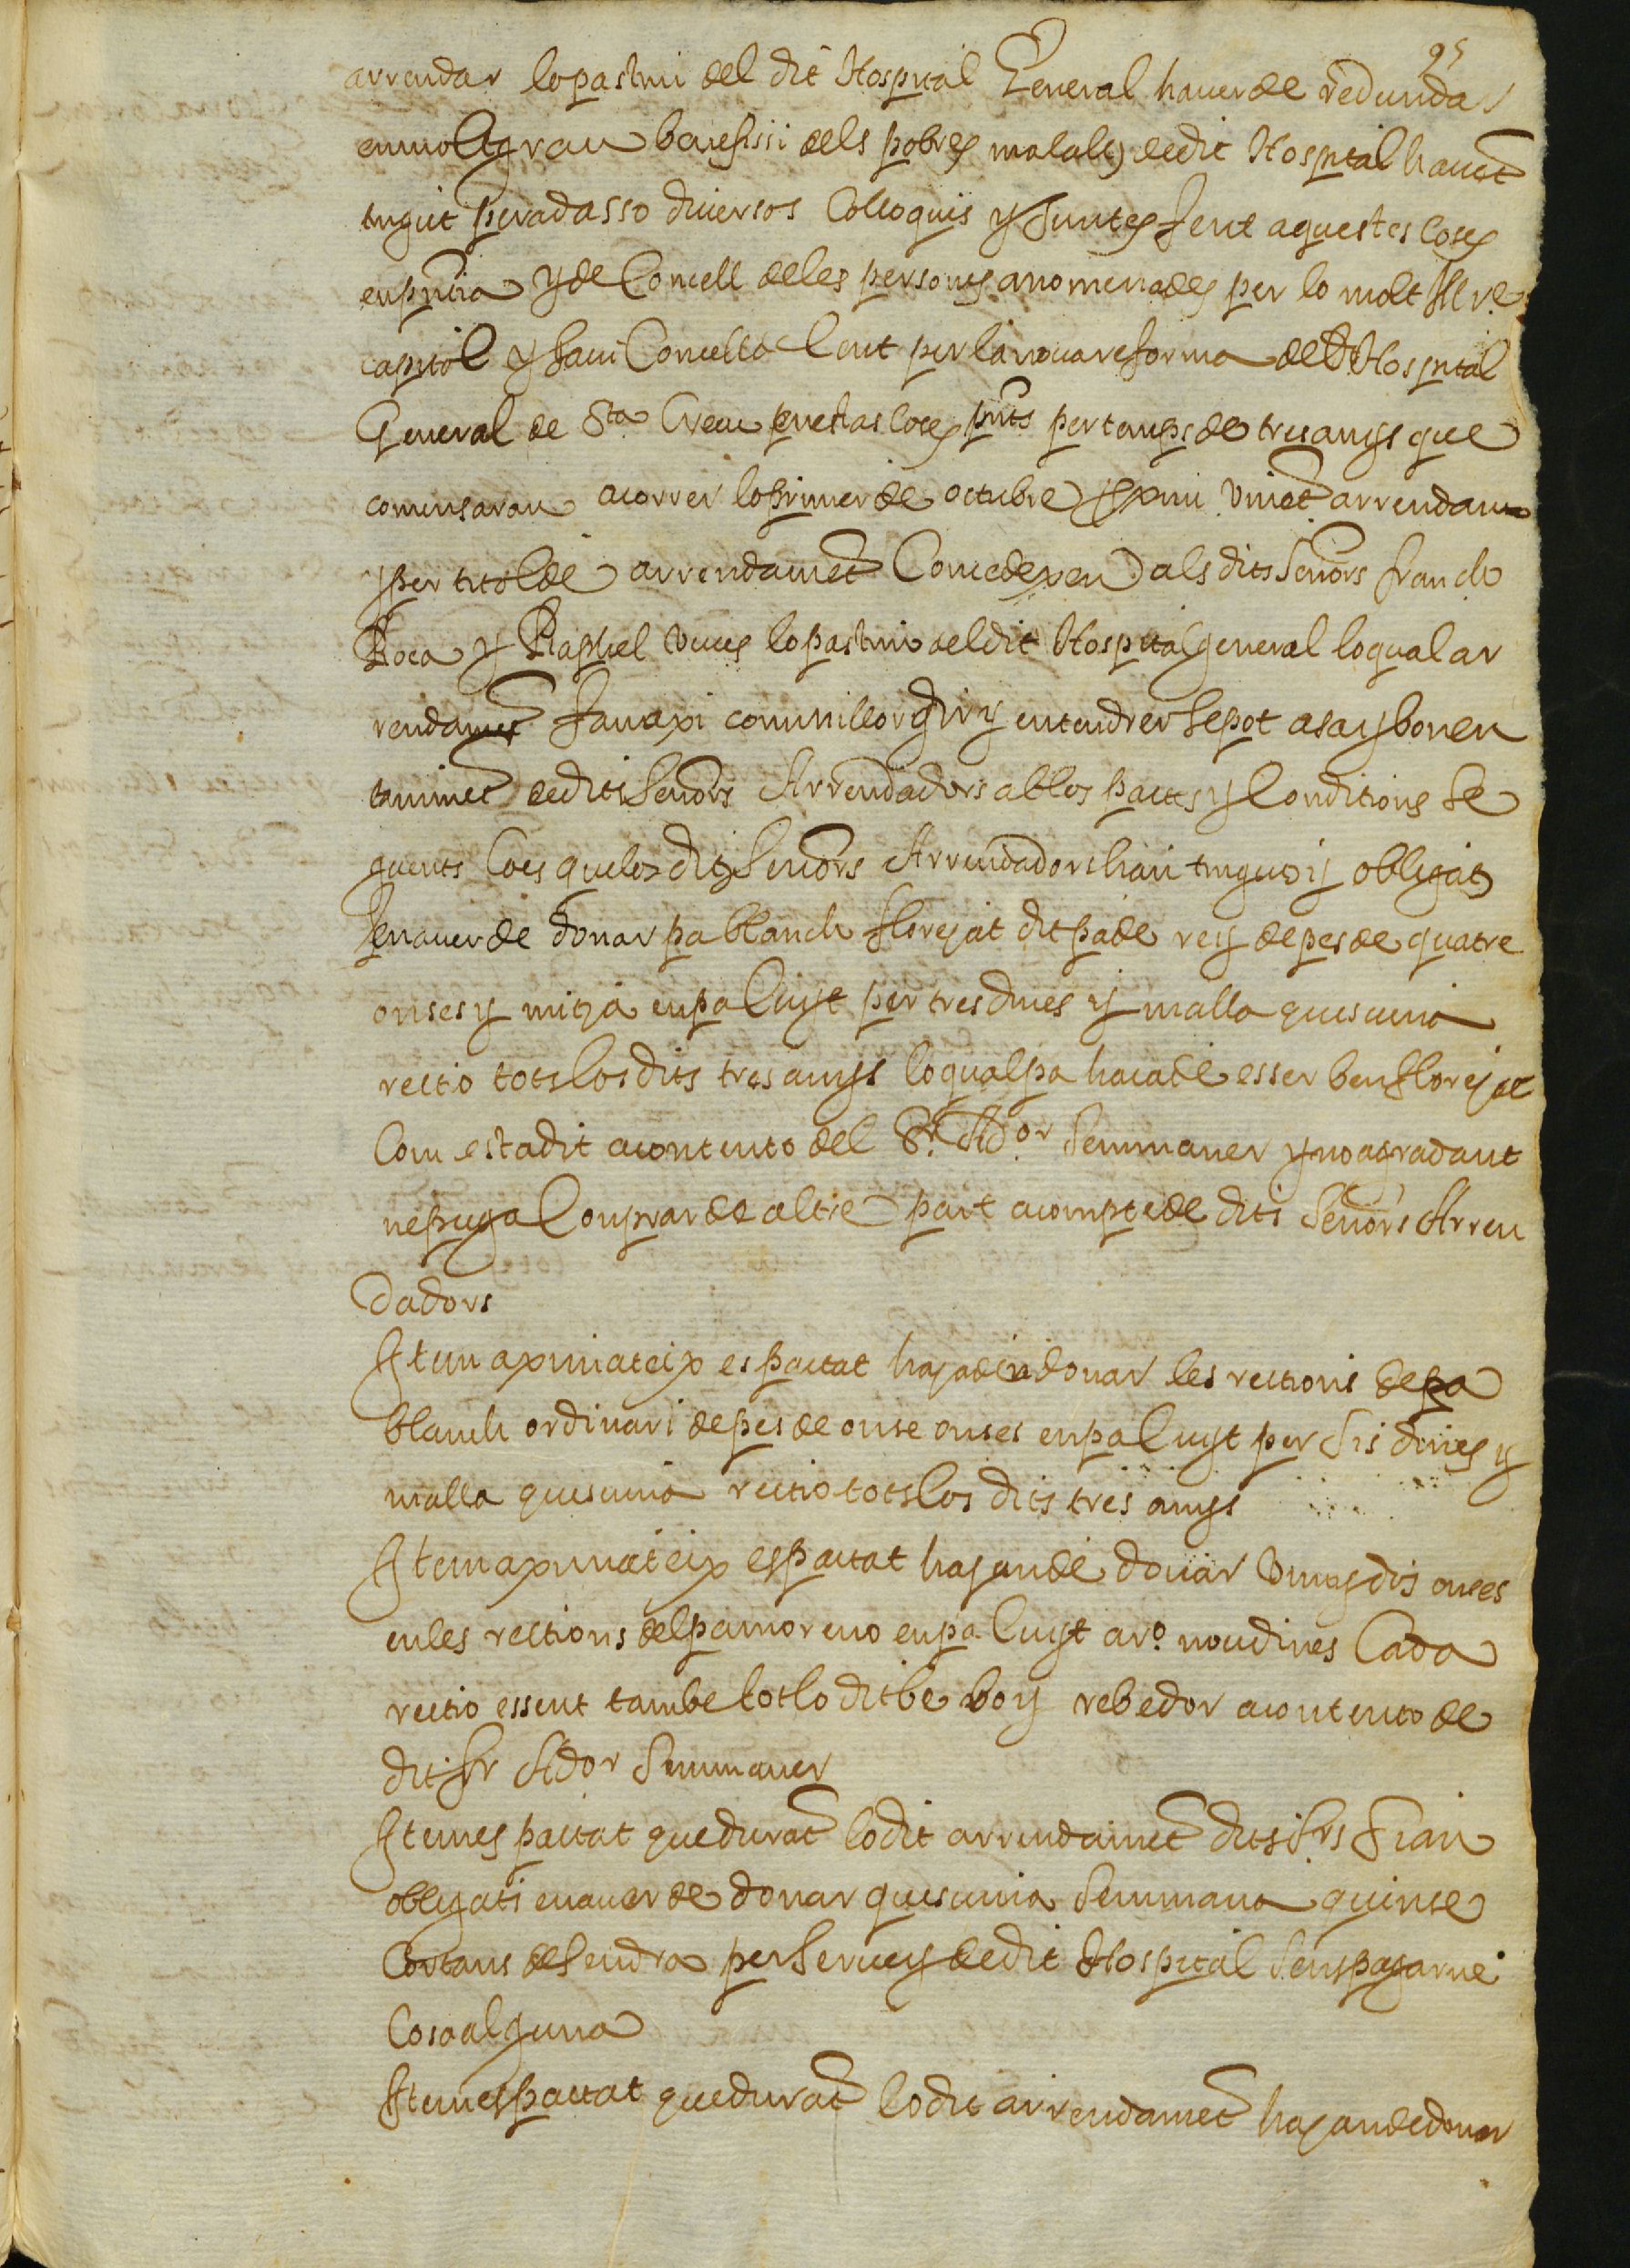 95
arrendar lo pastrin del dit Hospital General haver de redundar
en molt gran benefissi dels pobres malalts de dit Hospital havent
tngut per a da asso diversos Colloquis y Juntes fent aquestes coses
en pntia y de Concell de les persones anomenades per lo molt Illre
capitol y savi Concell de Cent per la nova reforma del dt Hospital
General de Sta Creu preshas coses pnts per temps de tres anys que
comensaran a correr lo primer de octubre pxim vinet arrendam
y per titol de arrendamet Concedexen als dits senors Franch
Roca y Raphel vives lo pastrin del dit Hospital general lo qual ar
rendamet fan axi com millor dir y entendrer se pot a sa y bon en
tenimet de dits senors Arrendadors ab los pactes y Conditions se
guents Co es que los dits senors Arrendadors hain tnguts y obligats
en aver de donar pa blanch florejat dit pa de rey de pes de quatre
onses y mitja en pa Cuyt per tres dines y malla quescuna
rectio tots los dits tres anys lo qual pa haia de esser ben florejat
Com esta dit a contento del Sr. Ador Semmaner y no agradant
ne puga Comprar de altre part a compte de dits Senors Arren
dadors
Item aximateix es pactat haja de in donar les rections de pa
blanch ordinari de pes de onse onses en pa Cuyt per sis dines y
malla quescuna rectio tots los dits tres anys
Item aximateix es pactat hajan de donar vint y dos onses
en les rections del pa moreno en pa Cuyt a ro. nou dines Cada
rectio essent tambe tot lo dit be bo y rebedor a contento de
dit sr Ador Semmaner
Item es pactat que durat lo dit arrendamet dits srs sian
obligats en aver de donar quescuna Semmana quinse
Cortans de Sendra per Servey de dit Hospital sens pagarne
Cosa alguna
Item es pactat que durat lo dit arrendamet hajan de donar